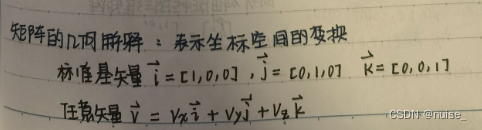 矩阵的几何解释：表示坐标空间的变换
标准基矢量 i⃗ = [1,0,0] , j⃗ = [0,1,0]  k⃗ = [0,0,1]
任意矢量 v⃗ = Vx i⃗ + Vy j⃗ + Vz k⃗
CSDN @nuise_